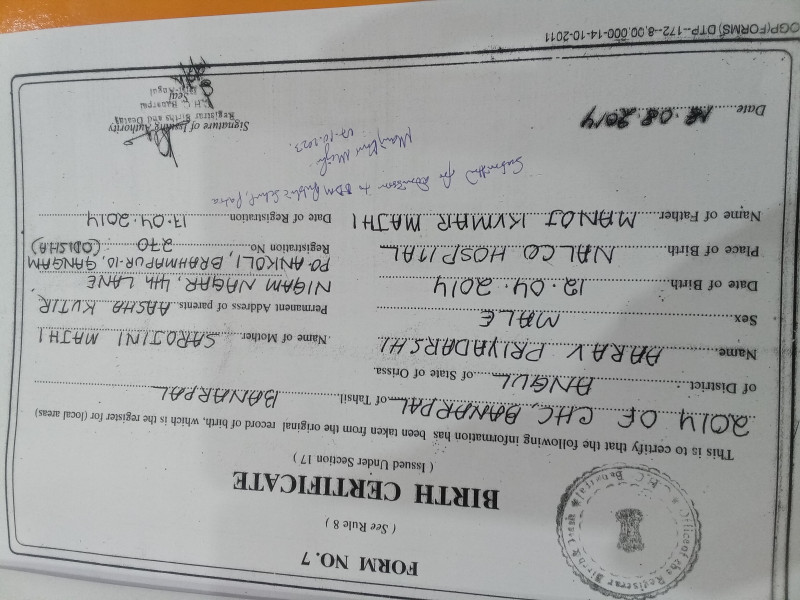 FORM NO. 7
( See Rule 8 )
BIRTH CERTIFICATE
( Issued Under Section 17 )
This is to certify that the following information has been taken from the original record of birth, which is the register for (local areas)
2014 OF CHC, BANARPAL of Tahsil. BANARPAL
of District : ANGUL of State of Orissa.
Name. AARAV PRIYADARSHI
Sex MALE
Date of Birth 12.04.2014
Place of Birth NALCO HOSPITAL
Name of Father MANOJ KUMAR MAJHI
Name of Mother SAROJINI MAJHI
Permanent Address of parents AASHA KUTIR
NIGAM NAGAR, 4th LANE
PO-ANKOLI, BRAHMAPUR-10, GANGAM
(ODISHA)
Registration No. 270
Date of Registration 17.04.2014
Submitted for admission to Public School,
07.10.2023
Date 12.08.2014
Signature of Issuing Authority
Registrar Births and Deaths
C.H.C. Banarpal
Seal
OGP(FORMS) DTP--172--8,00,000-14-10-2011